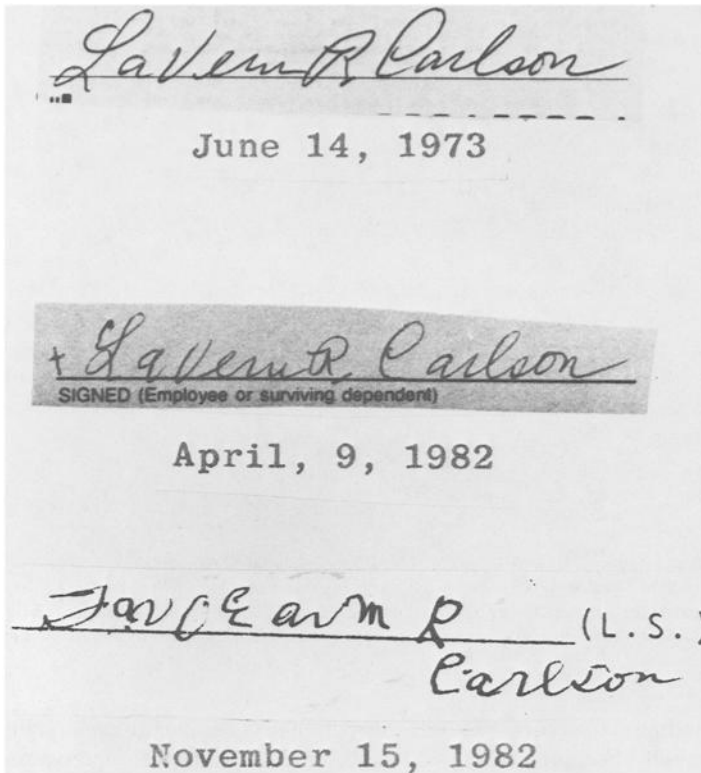 LaVern R Carlson
June 14, 1973
+ LaVern R Carlson
SIGNED (Employee or surviving dependent)
April, 9, 1982
R (L.S.)
Carlson
November 15, 1982